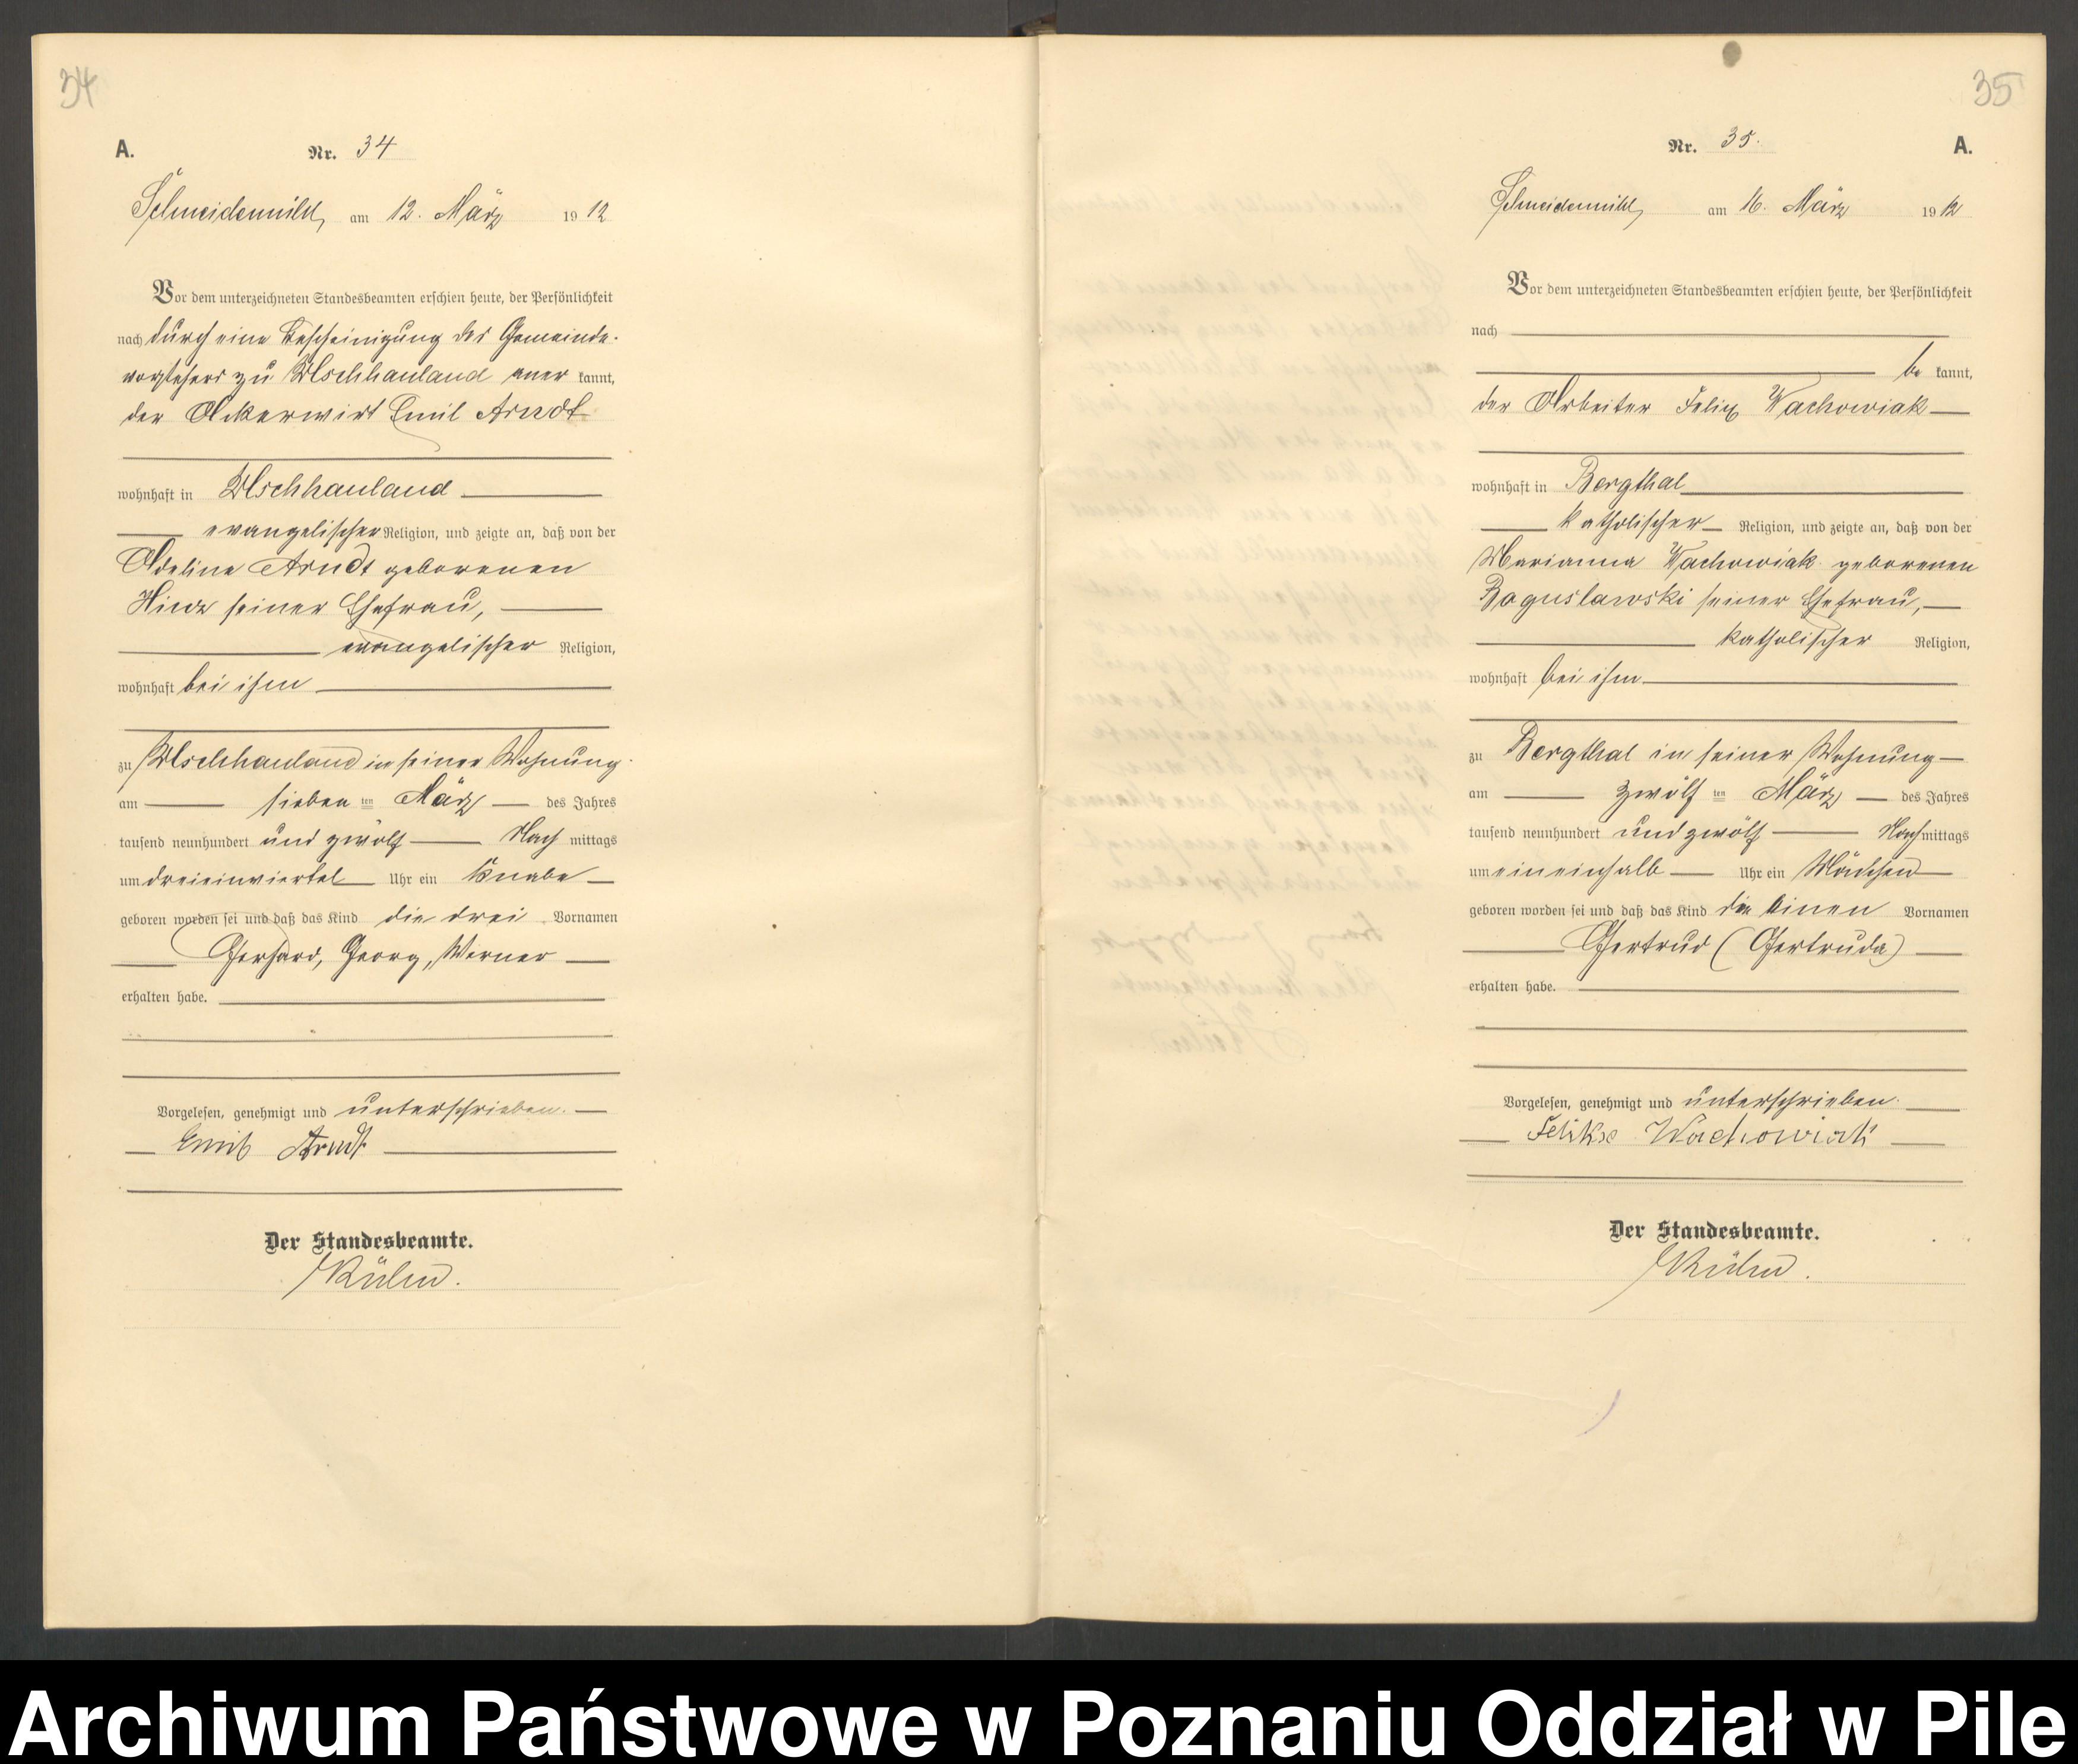 34
A.
Nr. 34
Schneidemühl, am 12. März 1912
Vor dem unterzeichneten Standesbeamten erschien heute, der Persönlichkeit
nach durch eine Bescheinigung des Gemeinde-
vorstehers zu Uschhauland aner kannt,
der Ackerwirt Emil Arndt
wohnhaft in Uschhauland
evangelischer Religion, und zeigte an, daß von der
Adeline Arndt geborenen
Hinz seiner Ehefrau,
evangelischer Religion,
wohnhaft bei ihm
zu Uschhauland in seiner Wohnung
am sieben ten März des Jahres
tausend neunhundert und zwölf Nach mittags
um dreieinviertel Uhr ein Knabe
geboren worden sei und daß das Kind die drei Vornamen
Gerhard, Georg, Werner
erhalten habe.
Vorgelesen, genehmigt und unterschrieben.
Emil Arndt
Der Standesbeamte.
Kühn.
35
Nr. 35.
A.
Schneidemühl, am 16. März 1912
Vor dem unterzeichneten Standesbeamten erschien heute, der Persönlichkeit
nach
be kannt,
der Arbeiter Felix Wachowiak
wohnhaft in Bergthal
katholischer Religion, und zeigte an, daß von der
Marianna Wachowiak geborenen
Boguslawski seiner Ehefrau,
katholischer Religion,
wohnhaft bei ihm
zu Bergthal in seiner Wohnung
am zwölf ten März des Jahres
tausend neunhundert und zwölf Nach mittags
um eineinhalb Uhr ein Mädchen
geboren worden sei und daß das Kind die einen Vornamen
Gertrud (Gertruda)
erhalten habe.
Vorgelesen, genehmigt und unterschrieben.
Felikse Wachowiak
Der Standesbeamte.
Kühn.
Archiwum Państwowe w Poznaniu Oddział w Pile